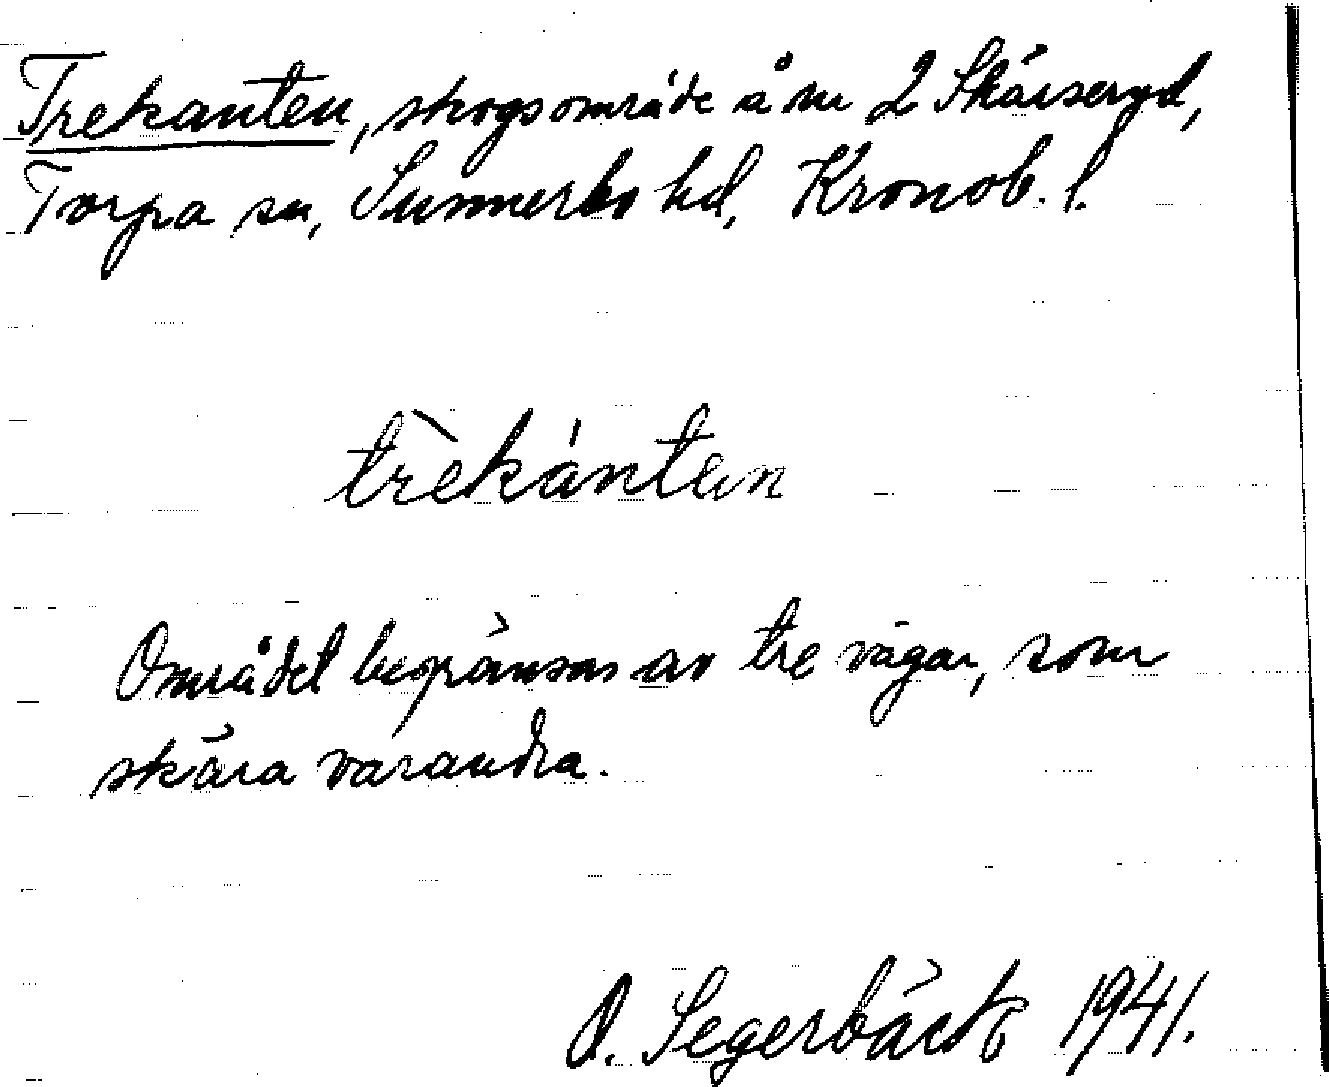 Trekanten, skogsområde å nr 2 Skärseryd,
Torpa sn, Sunnerbo hd, Kronob. l.
trèkántan
Området begränsas av tre vägar, som
skära varandra.
O. Segerbäck 1941.